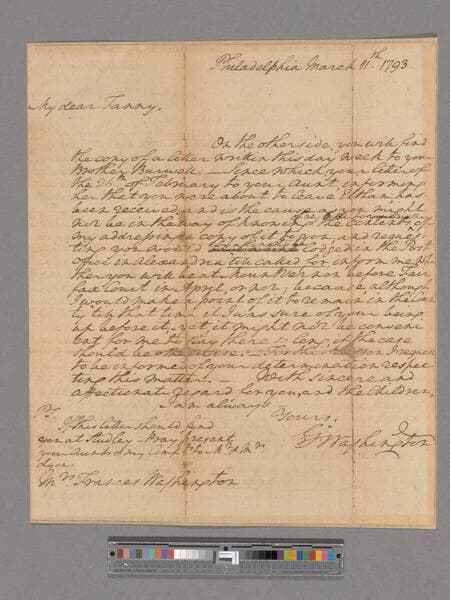 Philadelphia March 11th. 1793.
My dear Fanny,
On the other side, you will find
the copy of a letter written this day week to your
Brother Burwell. — Since which your letter of
the 26th. of February to your Aunt, informing
her that you were about to leave Eltham, has
been received, and is the cause
nor be in the way of knowing the contents of
my addressing a copy of it to you, and reques-
ting you would lodged in the Post
office in Alexandria till called for, inform me whe-
ther you will be at Mount Vernon before Fair
fax Court in April, or not; because although
I would make a point of it to remain in the Coun
ty till that time if I was sure of your being
up before it, yet, it might not be conveni
ent for me to stay there so long, if the case
should be otherwise. — For this I request
to be informed of your determination respec
ting this matter. — With sincere and
affectionate regard for you, and the Children,
I am always
Yours,
PS. If this letter should find
you at Studley — Pray present
your Aunts & my Compts. to Mr. & Mrs.
Lyon
Go: Washington
Mrs. Frances Washington